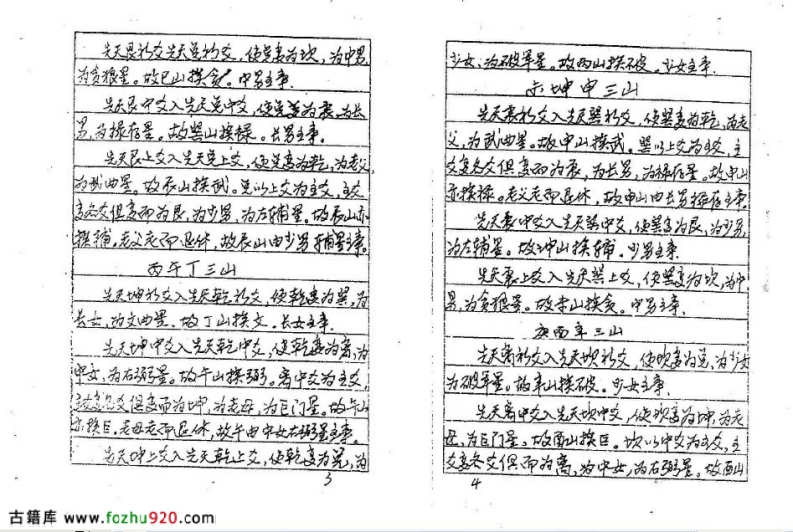 先天艮初爻先天兑初爻，使兑变为坎，为中男，
为贪狼星。故巳山挨贪。中男主事。
先天艮中爻入先天兑中爻，使兑变为震，为长
男，为禄存星。故巽山挨禄。长男主事。
先天艮上爻入先天兑上爻，使兑变为乾，为老父，
为武曲星。故辰山挨武。兑以上爻为主爻，主爻
变各爻俱变而为艮，为少男，为左辅星。故辰山亦
挨辅。老父老而退休，故辰山由少男辅星主事。
丙午丁三山
先天坤初爻入先天乾初爻，使乾变为巽，为
长女，为文曲星。故丁山挨文。长女主事。
先天坤中爻入先天乾中爻，使乾变为离，为
中女，为右弼星。故午山挨弼。离中爻为主爻，
主爻变各爻俱变而为坤，为老母，为巨门星。故午山
亦挨巨。老母老而退休，故午由中女右弼星主事。
先天坤上爻入先天乾上爻，使乾变为兑，为
3
少女，为破军星。故丙山挨破。少女主事。
未坤申三山
先天震初爻入先天巽初爻，使巽变为乾，为老
父，为武曲星。故申山挨武。巽以上爻为主爻，主
爻变各爻俱变而为震，为长男，为禄存星。故申山
亦挨禄。老父老而退休，故申山由长男禄存主事。
先天震中爻入先天巽中爻，使巽变为艮，为少男，
为左辅星。故坤山挨辅。少男主事。
先天震上爻入先天巽上爻，使巽变为坎，为中
男，为贪狼星。故未山挨贪。中男主事。
庚酉辛三山
先天离初爻入先天坎初爻，使坎变为兑，为少女
为破军星。故辛山挨破。少女主事。
先天离中爻入先天坎中爻，使坎变为坤，为老
母，为巨门星。故酉山挨巨。坎以中爻为主爻，主
爻变各爻俱而为离，为中女，为右弼星。故酉山
4
古籍库 www.fozhu920.com